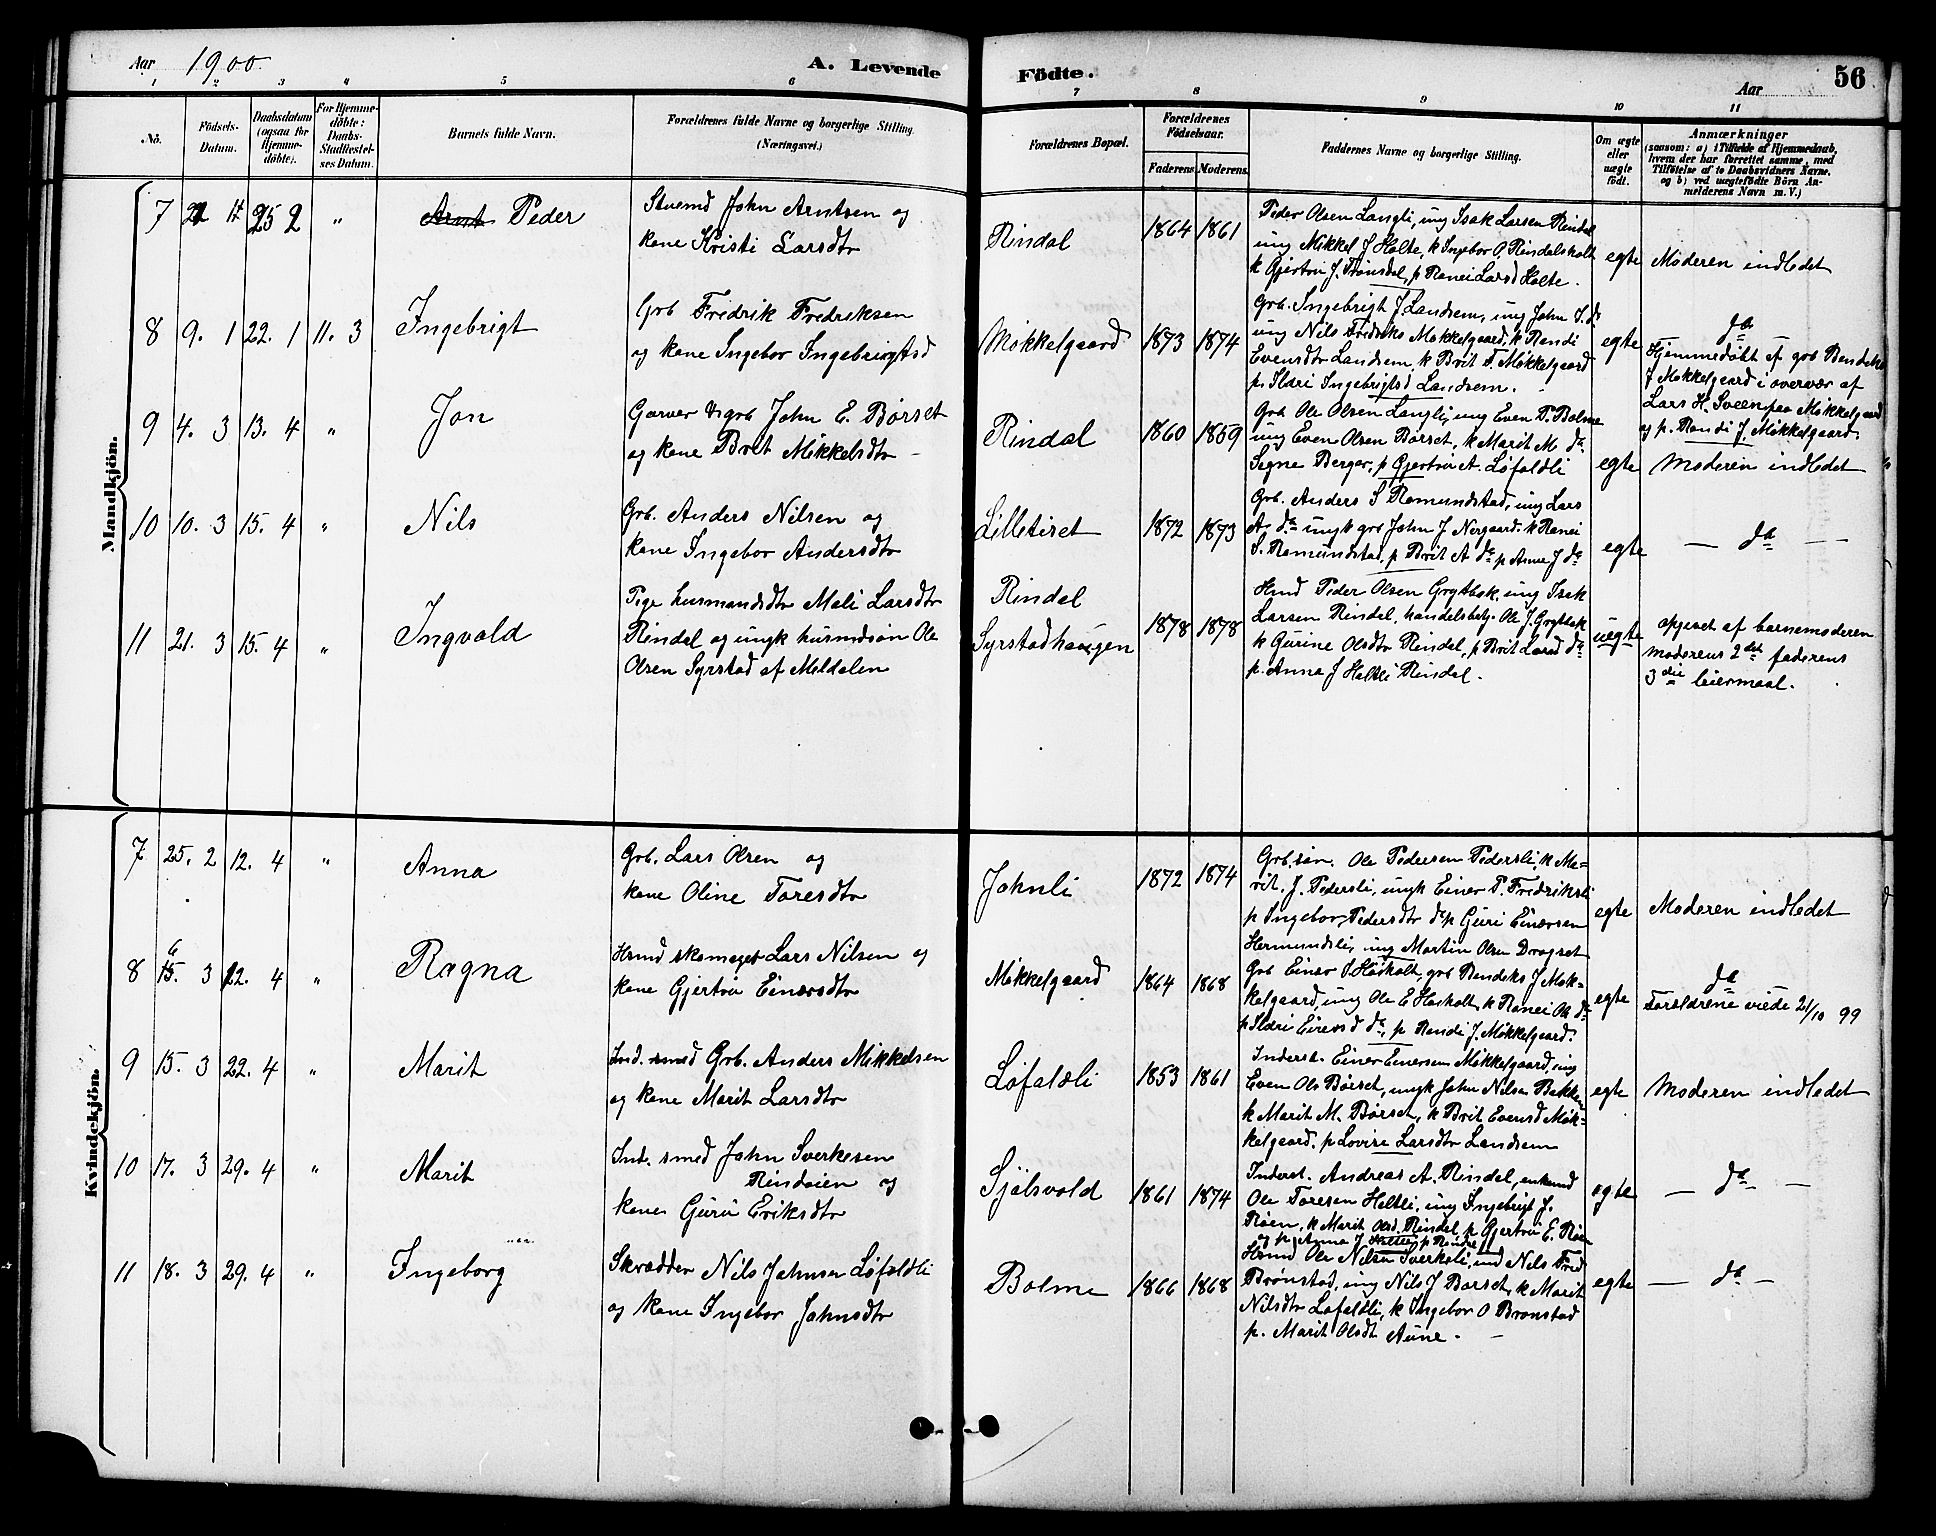 Aar 1900. A. Levende Födte. Aar 56
1 2 3 4 5 6 7 8 9 10 11
No. Födsels-Datum. Daabsdatum (ogsaa for Hjemmedöbte). For Hjemmedöbte: Daabs-Stadfæstelses Datum. Barnets fulde Navn. Forældrenes fulde Navne og borgerlige Stilling. (Næringsvei.) Forældrenes Bopæl. Forældrenes Födselsaar. Faderens Moderens. Faddernes Navne og borgerlige Stilling. Om ægte eller uægte födt. Anmærkninger (saasom: a) i Tilfælde af Hjemmedaab, hvem der har forrettet samme, med Tilföielse af to Daabsvidners Navne, og b) ved uægtefödte Börn Anmelderens Navn m. V.)
Mandkjön.
7 25 2 " Arnt Peder
Stuemd John Arntsen og
kone Kristi Larsdtr
Rindal 1864 1861
Peder Olsen Langli, ung Isak Larsen Rindal
ung Mikkel J Holte, k Ingebor O. Rindalsholt
k Gjertru J. Trønsdal, p Ranei Larsd Holte.
egte Moderen indledet
8 9. 1 22. 1 11. 3 Ingebrigt
Grb Fredrik Fredriksen
og kone Ingebor Ingebrigtsd
Møkkelgaard 1873 1874
Grb. Ingebrigt J Landsem, ung John I. do
ung Nils Fredriks Møkkelgaard, k Randi
Evensdtr Landsem, k Brit F. Møkkelgaard
p. Ildri Ingebrigtsd Landsem.
egte do
Hjemmedøbt af grb Bendik
J Møkkelgaard i overvær af
Lars H. Sveen paa Møkkelgaard
og p. Randi J. Møkkelgaard.
9 4. 3 13. 4 " Jon
Garver & grb John E. Børset
og kone Brit Mikkelsdtr
Rindal 1860 1859
Grb Ole Olsen Langli, ung Even P. Bolme
ung Even Olsen Børset, k Marit M do
Signe Berger, p Gjertru A. Løfaldli
egte Moderen indledet
10 10. 3 15. 4 " Nils
Grb. Anders Nilsen og
kone Ingebor Andersdtr
Lilletiset 1872 1873
Grb. Anders S Romundstad, ung Lars
A. do ungk grb John J Nergaard. k Ranei
S. Romundstad, p Brit A do p Anne J do
egte — do —
11 21. 3 15. 4 " Ingvald
Pige husmandsdtr Mali Larsdtr
Rindal og ungk husmdsøn Ole
Olsen Syrstad af Meldalen
Rindal
Syrstadhaugen 1878 1878
Hmd Peder Olsen Grytbak, ung Isak
Larsen Rindal, handelsbetj. Ole J. Grytbak
k Gurine Olsdtr Rindal, p Brit Larsd do
p. Anna J Holtli Rindal.
uegte opgivet af barnemoderen
moderens 2det faderens
3die leiermaal.
Kvindekjön.
7 25. 2 12. 4 " Anna
Grb. Lars Olsen og
kone Oline Toresdtr
Johnli 1872 1874
Grb.søn. Ole Pedersen Pedersli, k Ma-
rit. J. Pedersli, ungk Einer P. Fredriksli
p Ingebor Pedersdtr do p Guri Einersen
Hermundsli, ung Martin Olsen Drogset
egte Moderen indledet
8 15. 3 22. 4 " Ragna
6
Hsmd skomager Lars Nilsen og
kone Gjertru Einersdtr
Møkkelgaard 1864 1868
Grb Einer O Høsholt, grb Bendiks J Møk-
kelgaard, ung Ole E Høsholt, k Ranei Ols do
p Ildri Einersd do, p Randi J. Møkkelgaard.
egte do
Forældrene viede 21/10 99
9 15. 3 22. 4 " Marit
Ind. smed Grb. Anders Mikkelsen
og kone Marit Larsdtr
Løfaldli 1853 1861
Inderst. Einer Einersen Møkkelgaard, ung
Even Ols Børset, ungk John Nilsen Bakken
k Marit M. Børset, k Brit Evensd Møk-
kelgaard. p Lovise Larsdtr Landsem
egte Moderen indledet
10 17. 3 29. 4 " Marit
Ind. smed John Sverkesen
Rindøien og
kone Guru Eriksdtr
Sjølsvold 1861 1874
Inderst. Andreas A. Rindal, enkemd
Ole Toresen Holtli, ung Ingebrigt J.
Røen, k Marit Olsd. Rindal, p Gjertru E. Røen
og p Anna J Holtli p Rindal
egte — do —
11 18. 3 29. 4 " Ingeborg
Skrædder Nils Johnsen Løfaldli
og kone Ingebor Johnsdtr
Bolme 1866 1868
Hsmd Ole Nilsen Sverkeli, md Nils Fred
Brønstad, ung Nils J Børset, k Marit
Nilsdtr Løfaldli, k Ingebor O Brønstad
p. Marit Olsdt Aune.
egte — do —